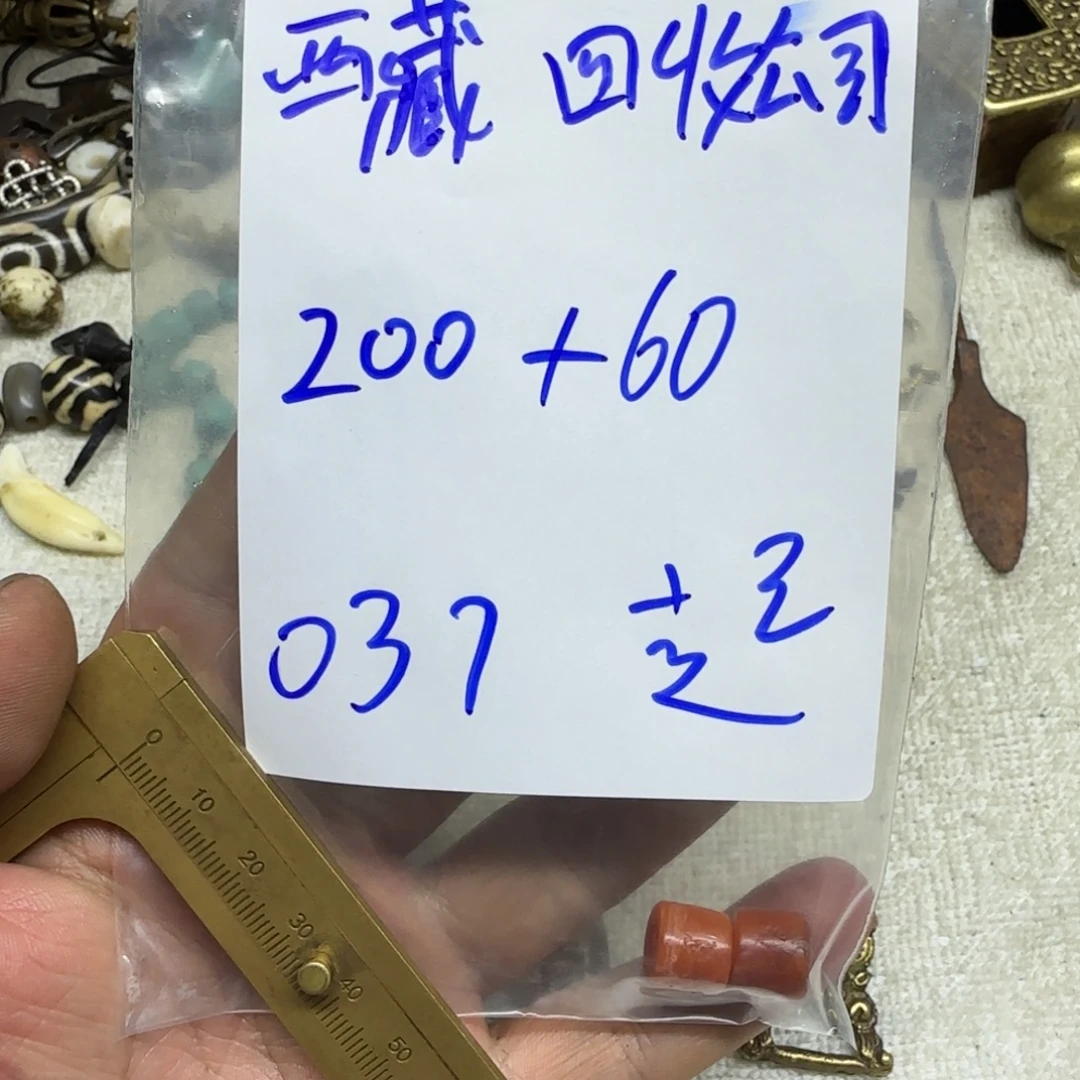 西藏 回收公司
200+60
037
0
10
20
30
40
50